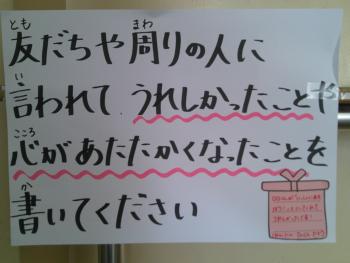 友だちや周りの人に
言われて うれしかったことや
心があたたかくなったことを
書いてください